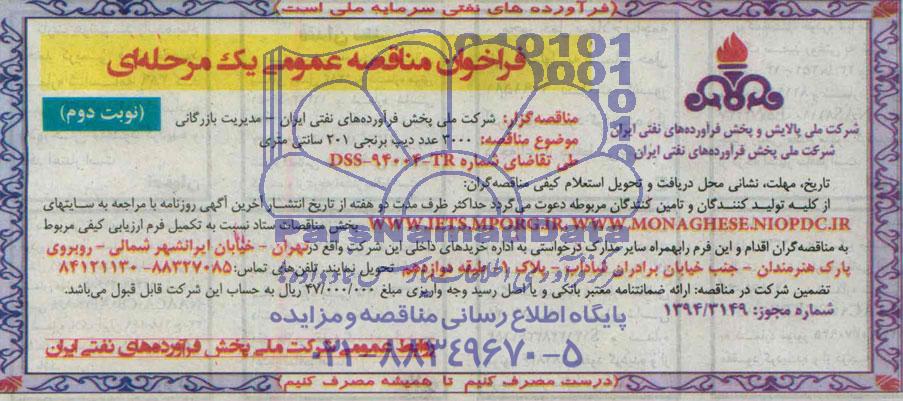 (فرآورده های نفتی سرمایه ملی است)
فراخوان مناقصه عمومی یک مرحله‌ای
(نوبت دوم)
شرکت ملی پالایش و پخش فرآورده‌های نفتی ایران
شرکت ملی پخش فرآورده‌های نفتی ایران
مناقصه‌گزار: شرکت ملی پخش فرآورده‌های نفتی ایران – مدیریت بازرگانی
موضوع مناقصه: ۳۰۰۰ عدد دیپ برنجی ۲۰۱ سانتی متری
طی تقاضای شماره DSS-94004-TR
تاریخ، مهلت، نشانی محل دریافت و تحویل استعلام کیفی مناقصه‌گران:
از کلیه تولید کنندگان و تامین کنندگان مربوطه دعوت می‌گردد حداکثر ظرف مدت دو هفته از تاریخ انتشار آخرین آگهی روزنامه با مراجعه به سایتهای
WWW.IETS.MPORG.IR, WWW.MONAGHESE.NIOPDC.IR بخش مناقصات ستاد نسبت به تکمیل فرم ارزیابی کیفی مربوط
به مناقصه‌گران اقدام و این فرم را بهمراه سایر مدارک درخواستی به اداره خریدهای داخلی این شرکت واقع در تهران – خیابان ایرانشهر شمالی – روبروی
پارک هنرمندان – جنب خیابان برادران – پلاک ۱ – طبقه دوازدهم تحویل نمایند. تلفن‌های تماس: ۸۸۳۲۷۰۸۵ – ۸۴۱۲۱۱۳۰
تضمین شرکت در مناقصه: ارائه ضمانتنامه معتبر بانکی و یا اصل رسید وجه واریزی مبلغ ۴۷/۰۰۰/۰۰۰ ریال به حساب این شرکت قابل قبول می‌باشد.
شماره مجوز: ۱۳۹۴/۳۱۴۹
پایگاه اطلاع رسانی مناقصه و مزایده
روابط عمومی شرکت ملی پخش فرآورده‌های نفتی ایران
۰۲۱-۸۸۳۴۹۶۷۰-۵
(درست مصرف کنیم تا همیشه مصرف کنیم)
010101
0001
ParsNamadData